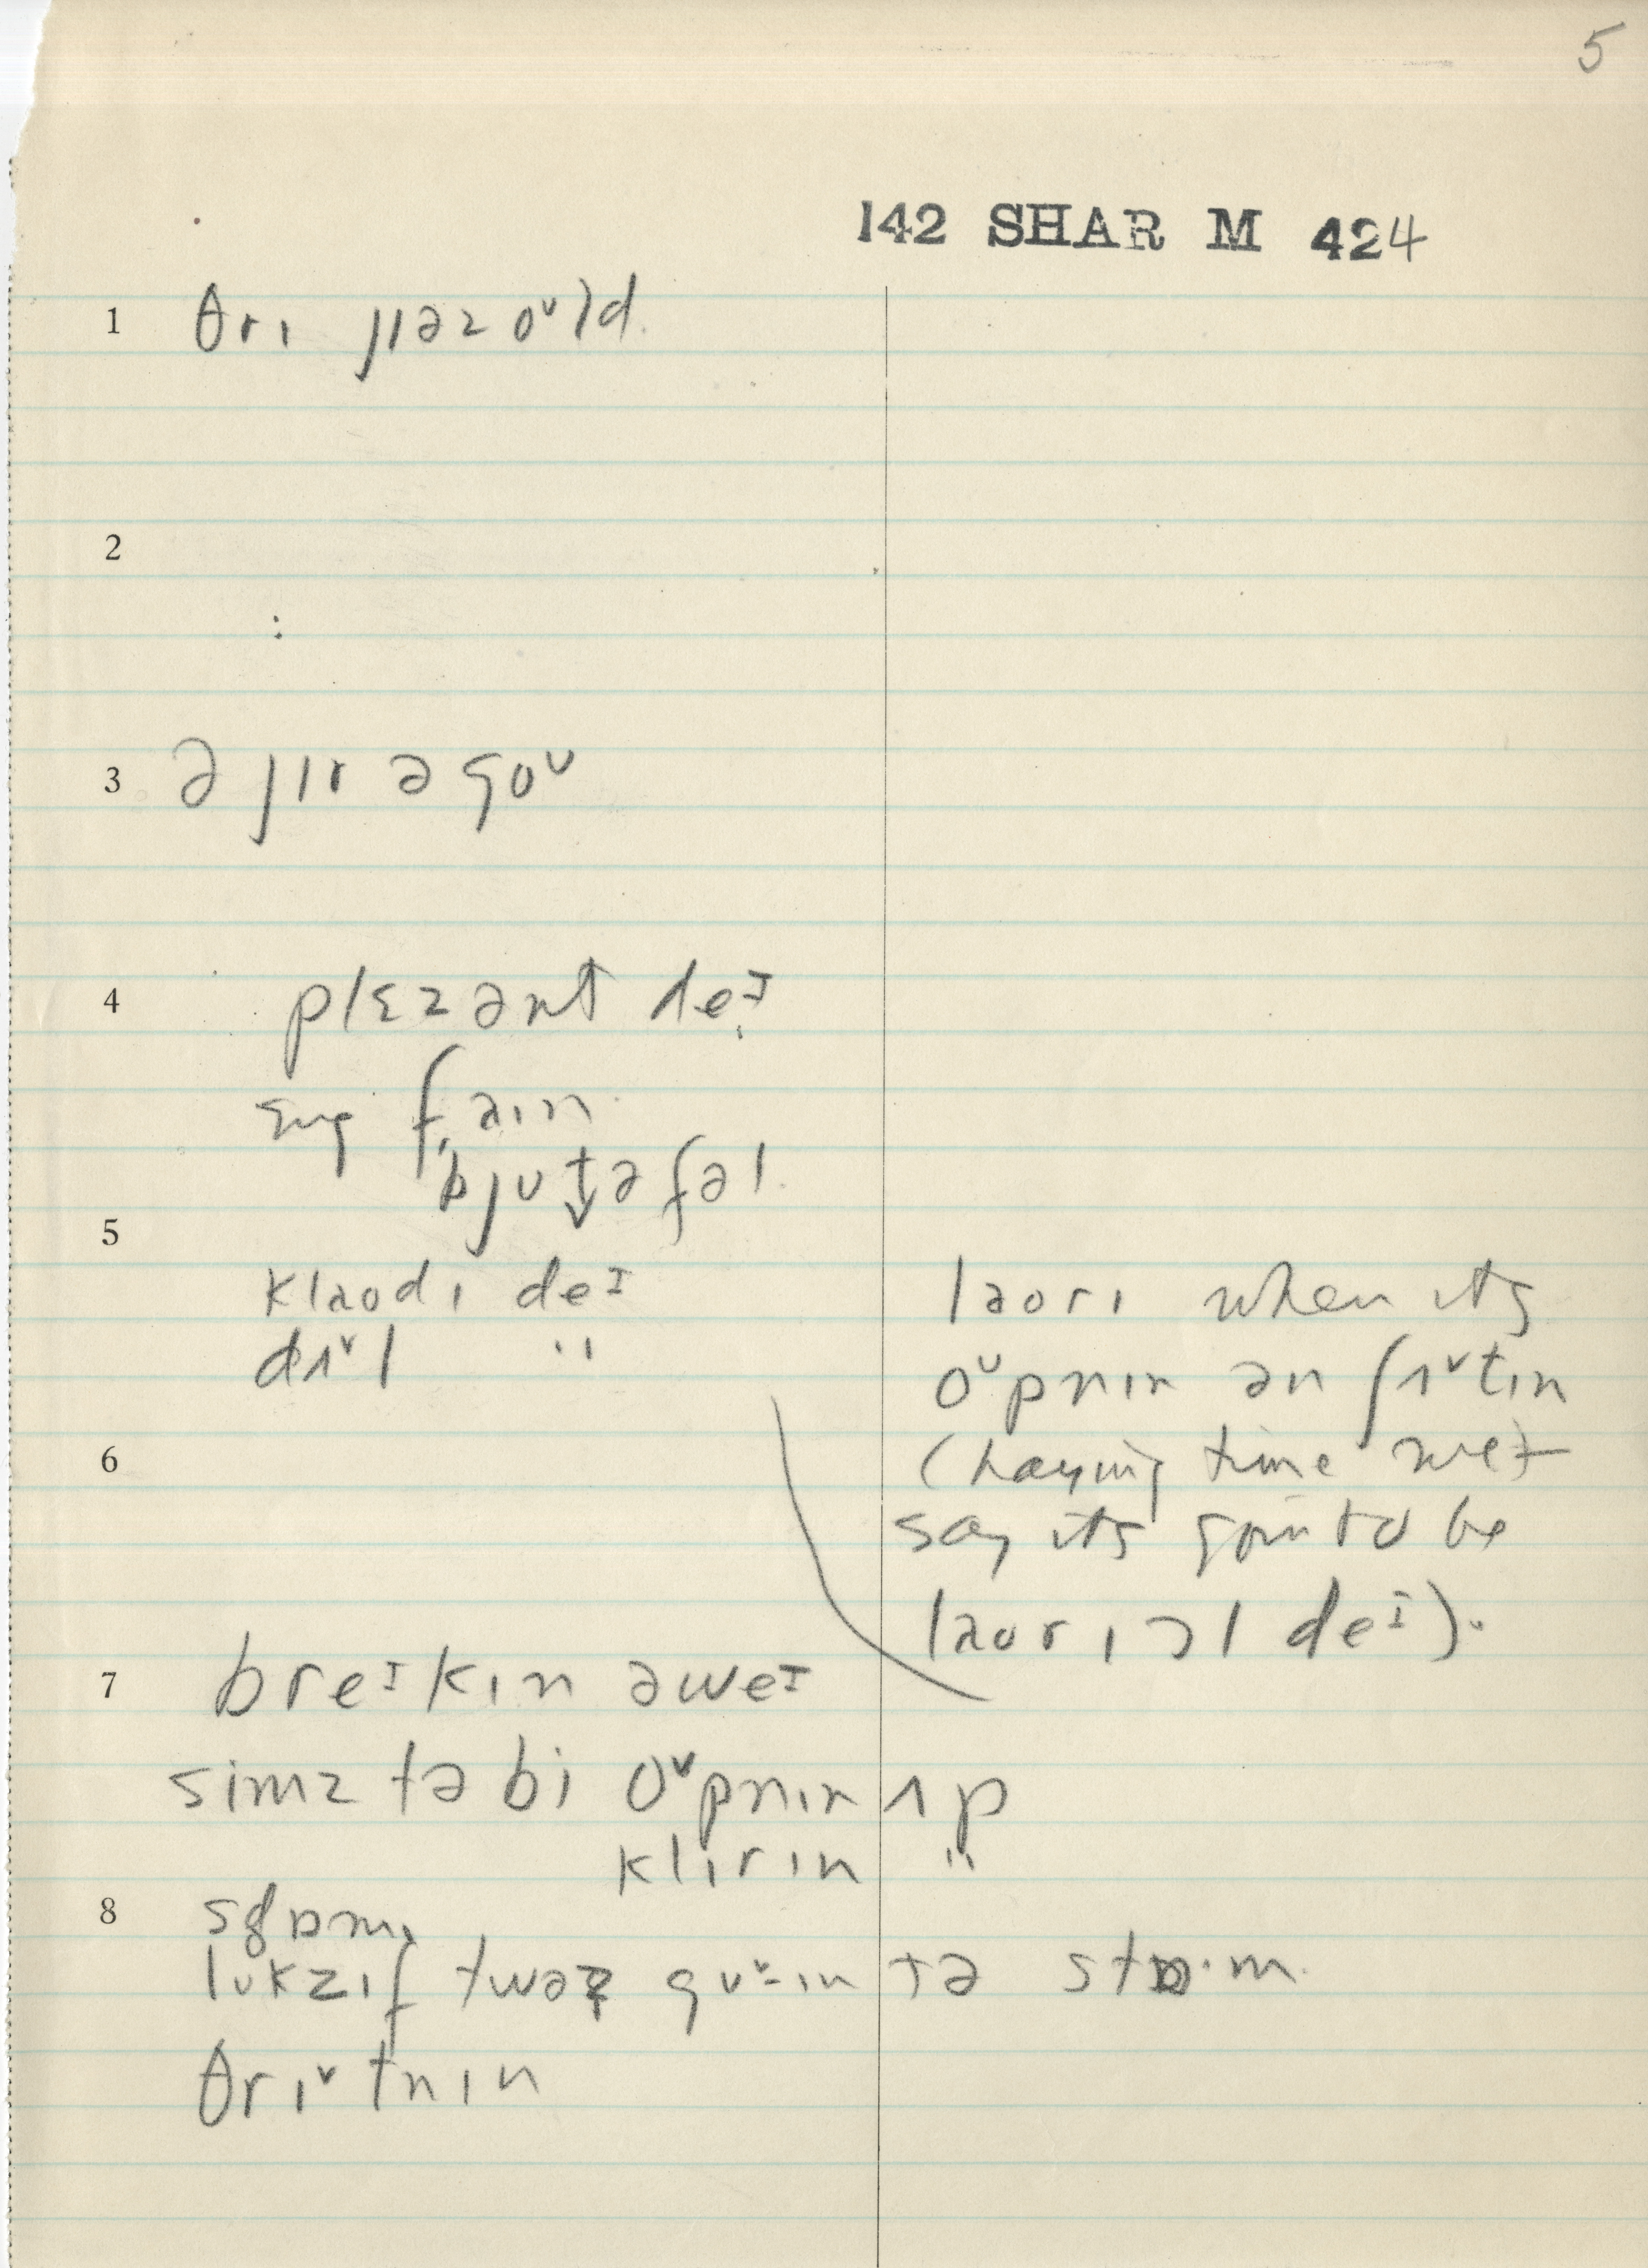 5
142 SHAR M 424
1 θrɪ jɪəz oᵛld.
2
3 ə jɪr əgoᵛ
4 plɛzənt deᴵ
fain
bjutəfəl.
5
klaᴜdɪ deᴵ
dʌᵛl "
laʊrɪ when its
oᵛpnɪn ən ʃʌᵛtɪn
6 (haying time we'd
say its goin to be
laʊrɪ ɔl deᴵ).
7 breᴵkɪn əweᴵ
simz tə bi oᵛpnɪn ʌp
klɪrɪn "
8
lʊkzɪf twəz guᵛ-ɪn tə stɒ·m.
θrɪᵛtnɪn